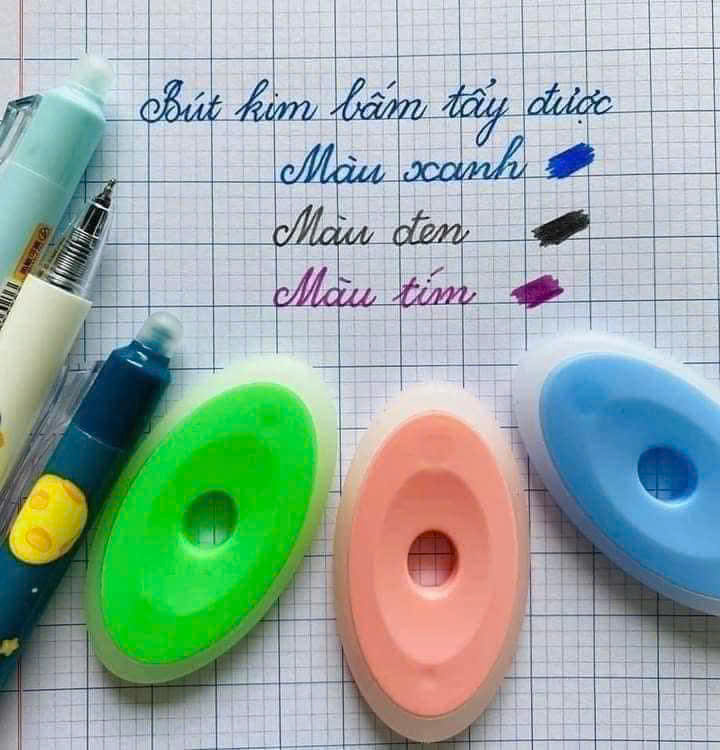 Bút kim bấm tẩy được
Màu xanh
Màu đen
Màu tím